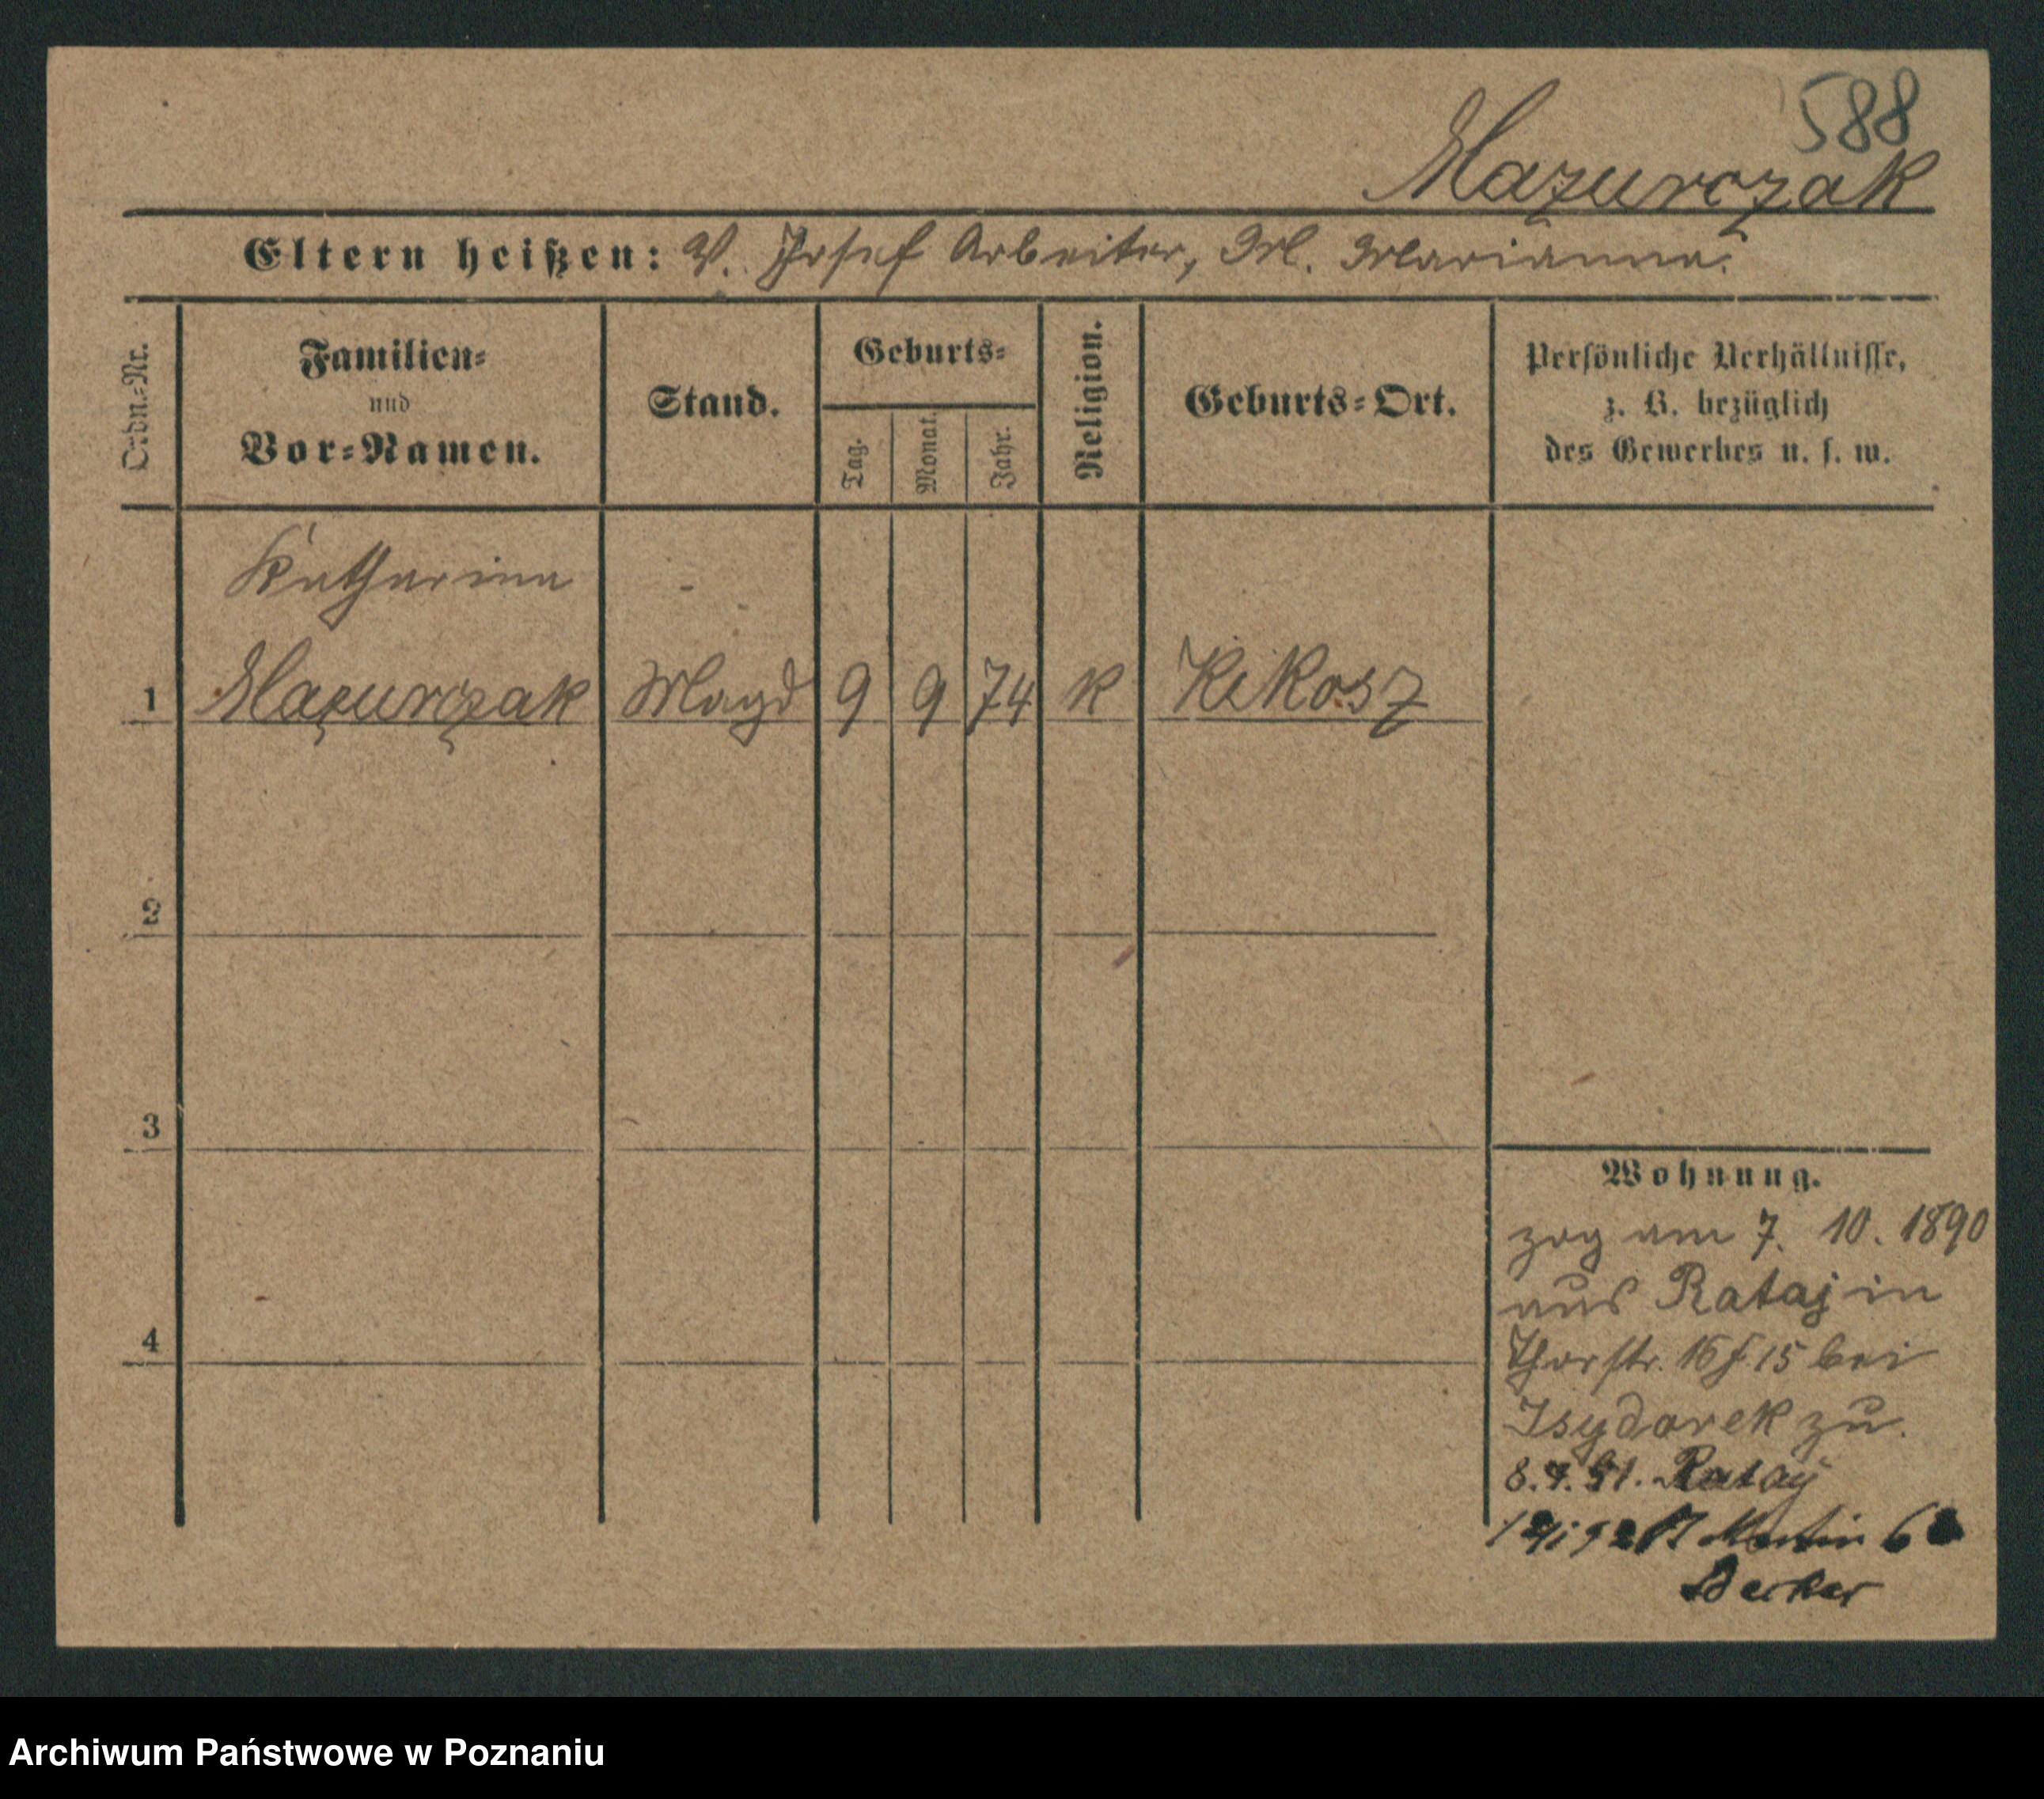 588
Mazurczak
Eltern heißen: V. Josef Arbeiter, M. Marianna.
Ordn.-Nr.
Familien-
und
Vor-Namen.
Stand.
Geburts-
Tag.
Monat.
Jahr.
Religion.
Geburts-Ort.
Persönliche Verhältnisse,
z. B. bezüglich
des Gewerbes u. s. w.
Katharina
1 Mazurczak Magd 9 9 74 K Kikosz
2
3
4
Wohnung.
zog am 7. 10. 1890
aus Rataj in
Thorstr. 16 f. 15 bei
Isydorek zu.
8.7.91. Rataj
Martin
Becker
Archiwum Państwowe w Poznaniu